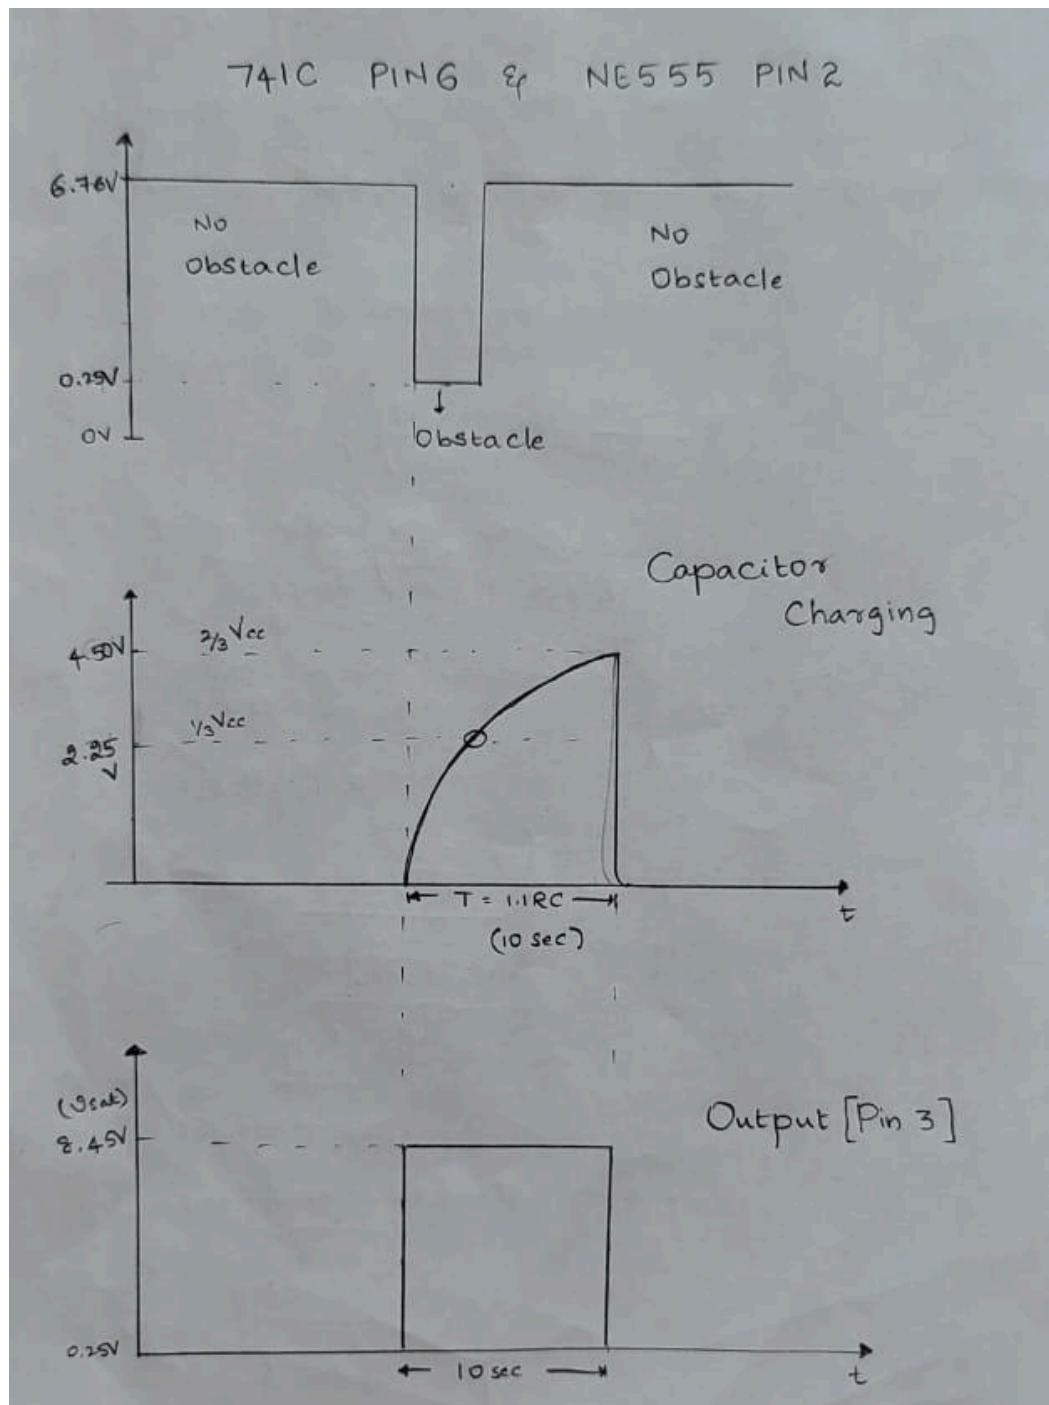 741C PIN6 & NE555 PIN2
6.76V
No
Obstacle
No
Obstacle
0.29V
0V
Obstacle
Capacitor
Charging
4.50V
2/3 Vcc
1/3 Vcc
2.25
V
T = 1.1RC
(10 sec)
t
(Vsat)
8.45V
Output [Pin 3]
0.25V
10 sec
t